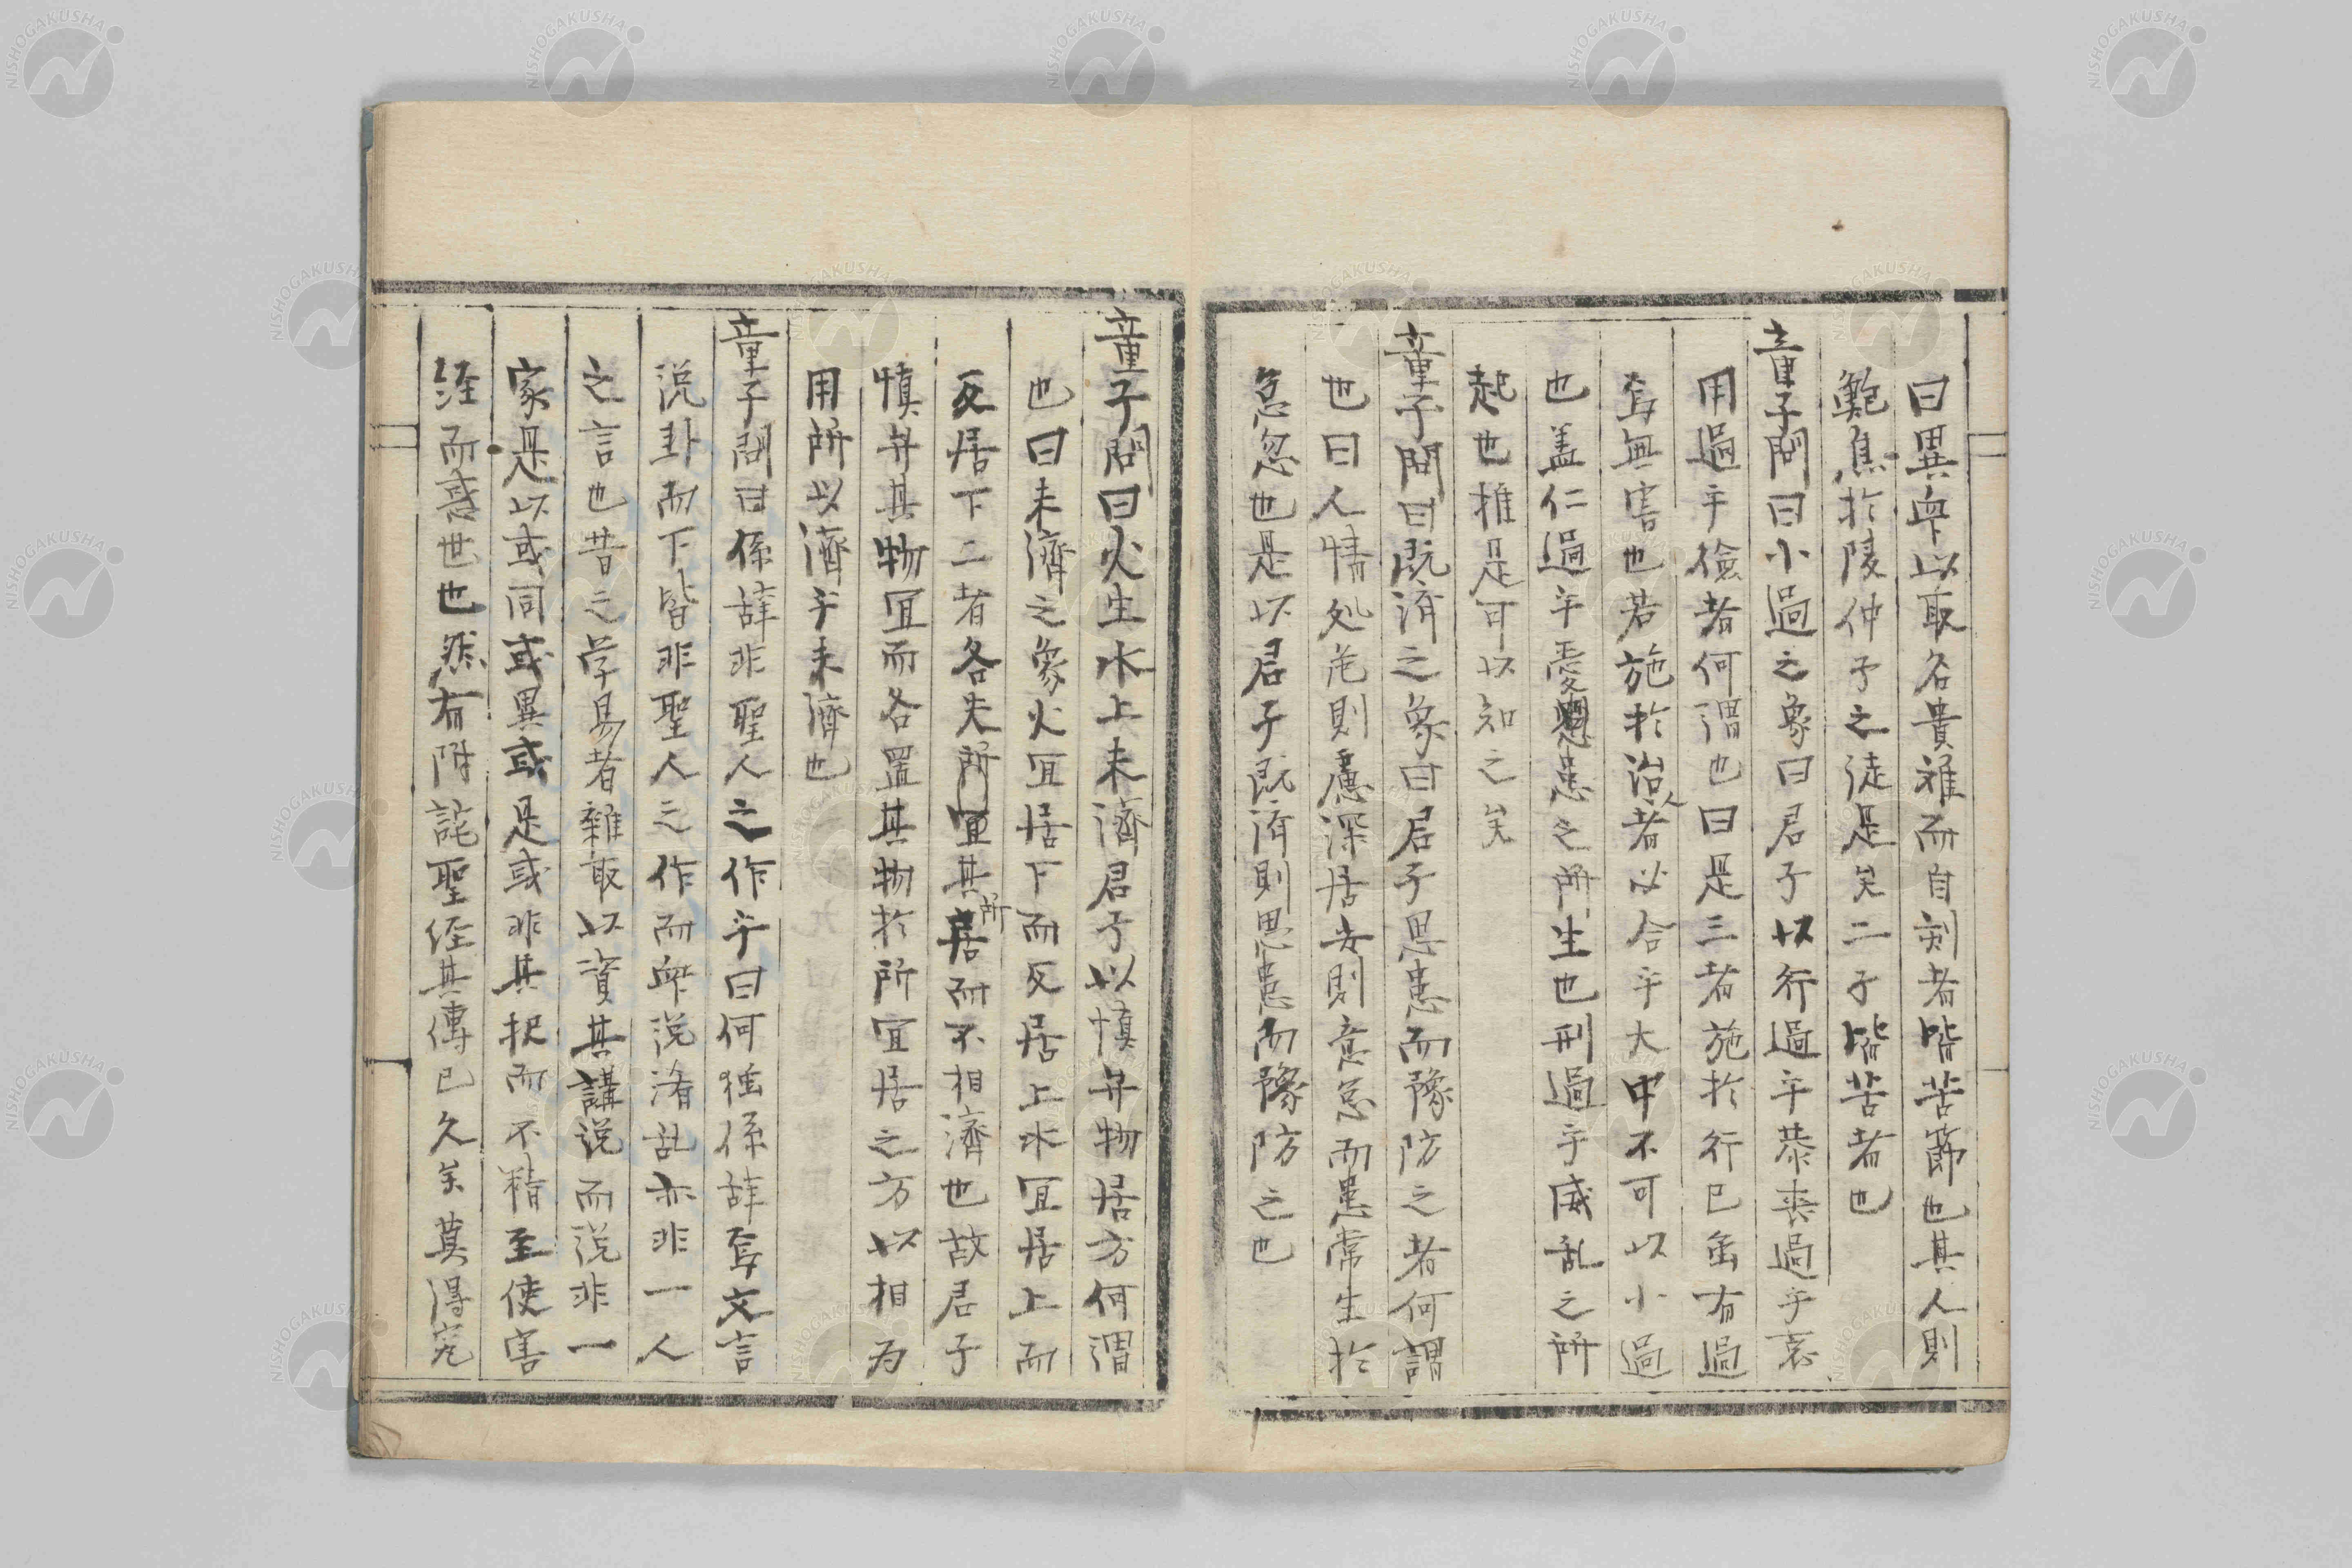 曰異衆以取名貴難而自刻者皆苦節也其人則
鮑焦於陵仲子之徒是矣二子皆苦者也
童子問曰小過之象曰君子以行過乎恭喪過乎哀
用過乎儉者何謂也曰是三者施於行已虽有過
焉無害也若施於治人者必合乎大中不可以小過
也盖仁過乎愛患之所生也刑過乎威乱之所
起也推是可以知之矣
童子問曰既济之象曰君子思患而豫防之者何謂
也曰人情処危則慮深居安則意怠而患常生於
怠忽也是以君子既济則思患而豫防之也
童子問曰火生水上未濟君子以慎弁物居方何謂
也曰未濟之象火宜居下而反居上水宜居上而
反居下二者各失所宜其所居而不相濟也故君子
慎弁其物宜而各置其物於所宜居之方以相为
用所以濟乎未濟也
童子問曰係辞非聖人之作乎曰何独係辞焉文言
说卦而下皆非聖人之作而衆说淆乱亦非一人
之言也昔之学易者雜取以資其講说而说非一
家是以或同或異或是或非其択而不精至使害
経而惑世也然有附託聖経其傳已久矣莫得究
NISHOGAKUSHA